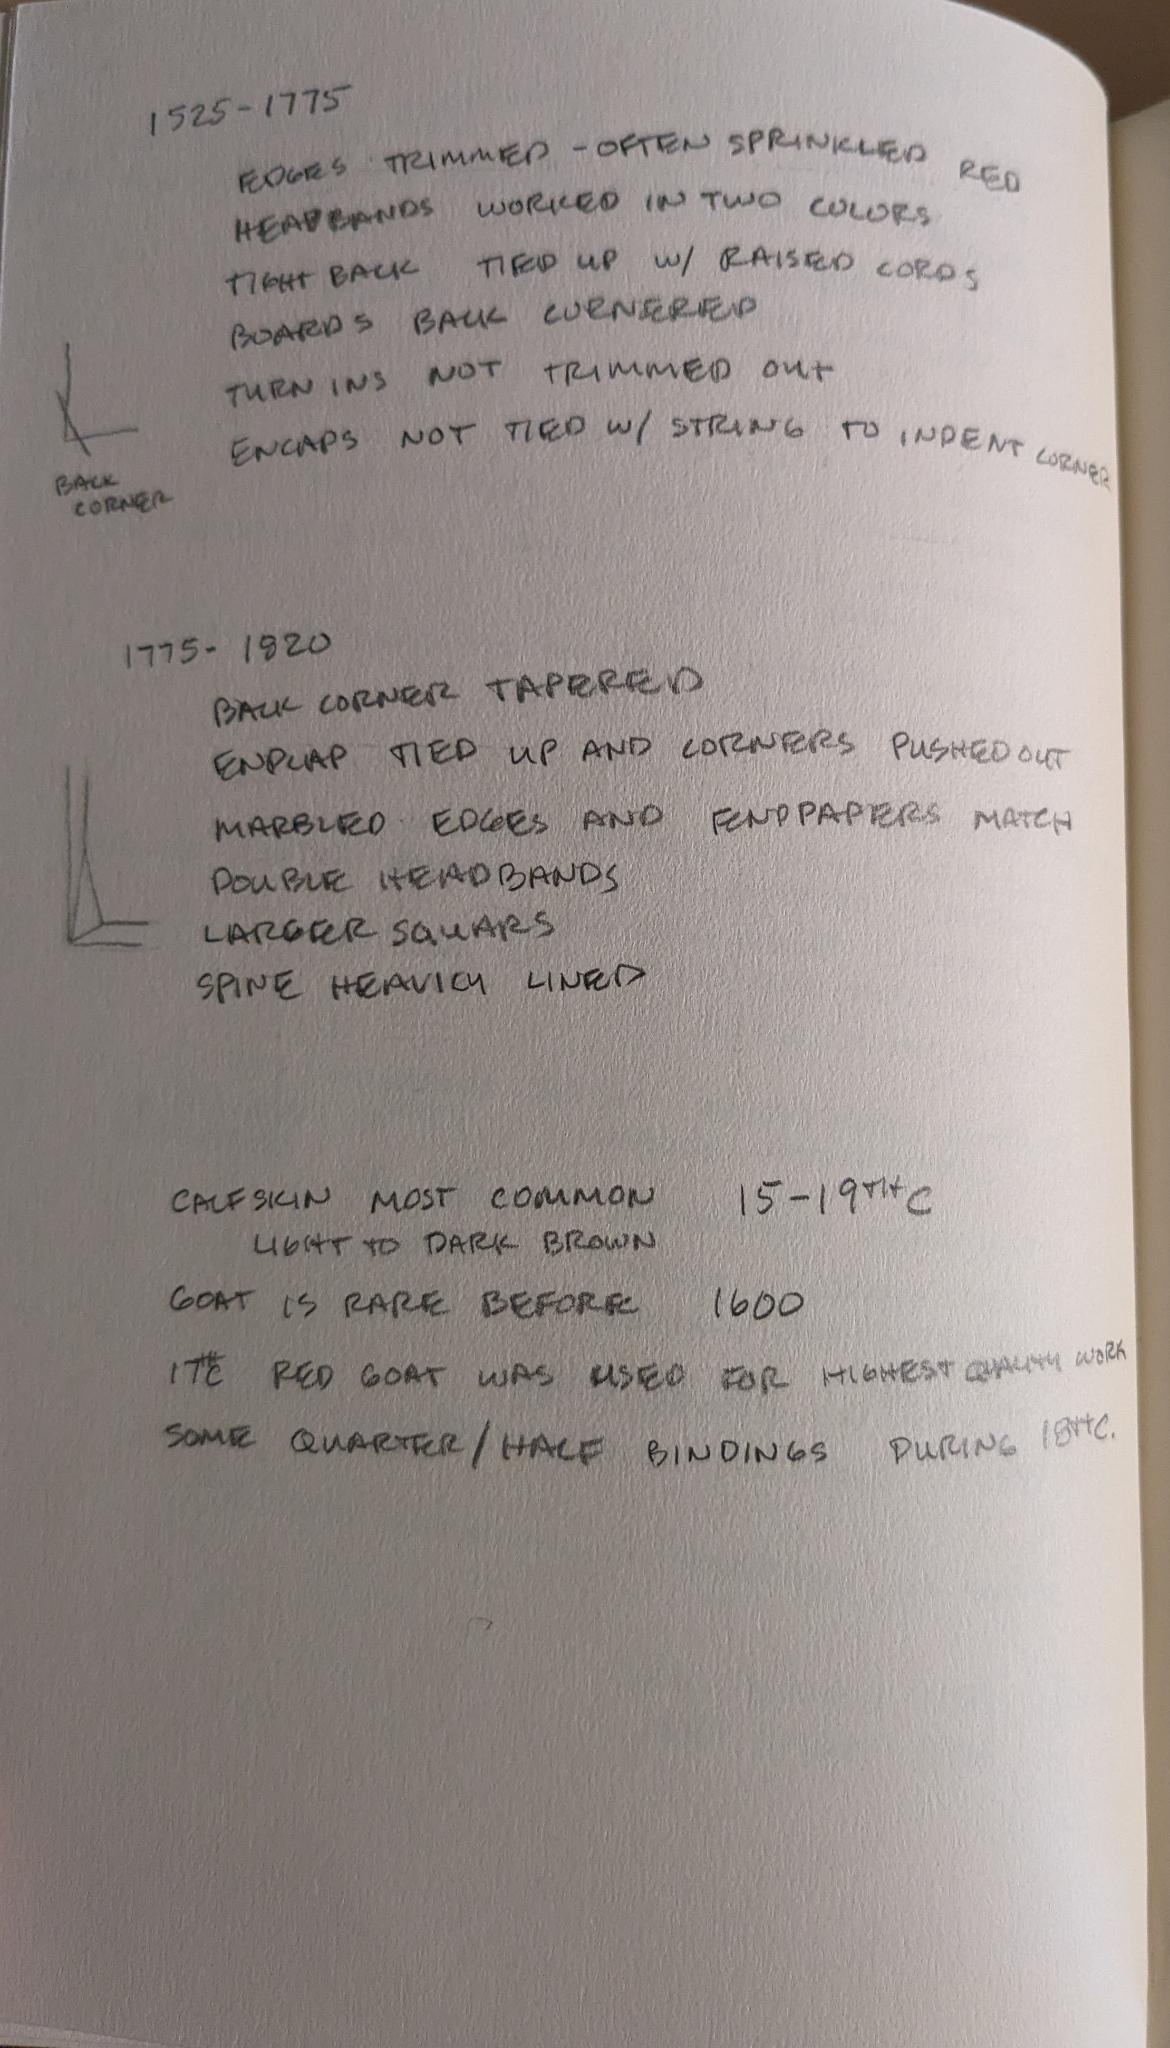 1525-1775
EDGES TRIMMED - OFTEN SPRINKLED RED
HEADBANDS WORKED IN TWO COLORS
TIGHT BACK TIED UP W/ RAISED CORDS
BOARDS BACK CORNERED
TURN INS NOT TRIMMED OUT
ENCAPS NOT TIED W/ STRING TO INDENT CORNER
BACK
CORNER
1775- 1820
BACK CORNER TAPERED
ENDCAP TIED UP AND CORNERS PUSHED OUT
MARBLED EDGES AND ENDPAPERS MATCH
DOUBLE HEADBANDS
LARGER SQUARS
SPINE HEAVILY LINED
CALFSKIN MOST COMMON 15-19TH C
LIGHT TO DARK BROWN
GOAT IS RARE BEFORE 1600
17TH C RED GOAT WAS USED FOR HIGHEST QUALITY WORK
SOME QUARTER/HALF BINDINGS DURING 18TH C.